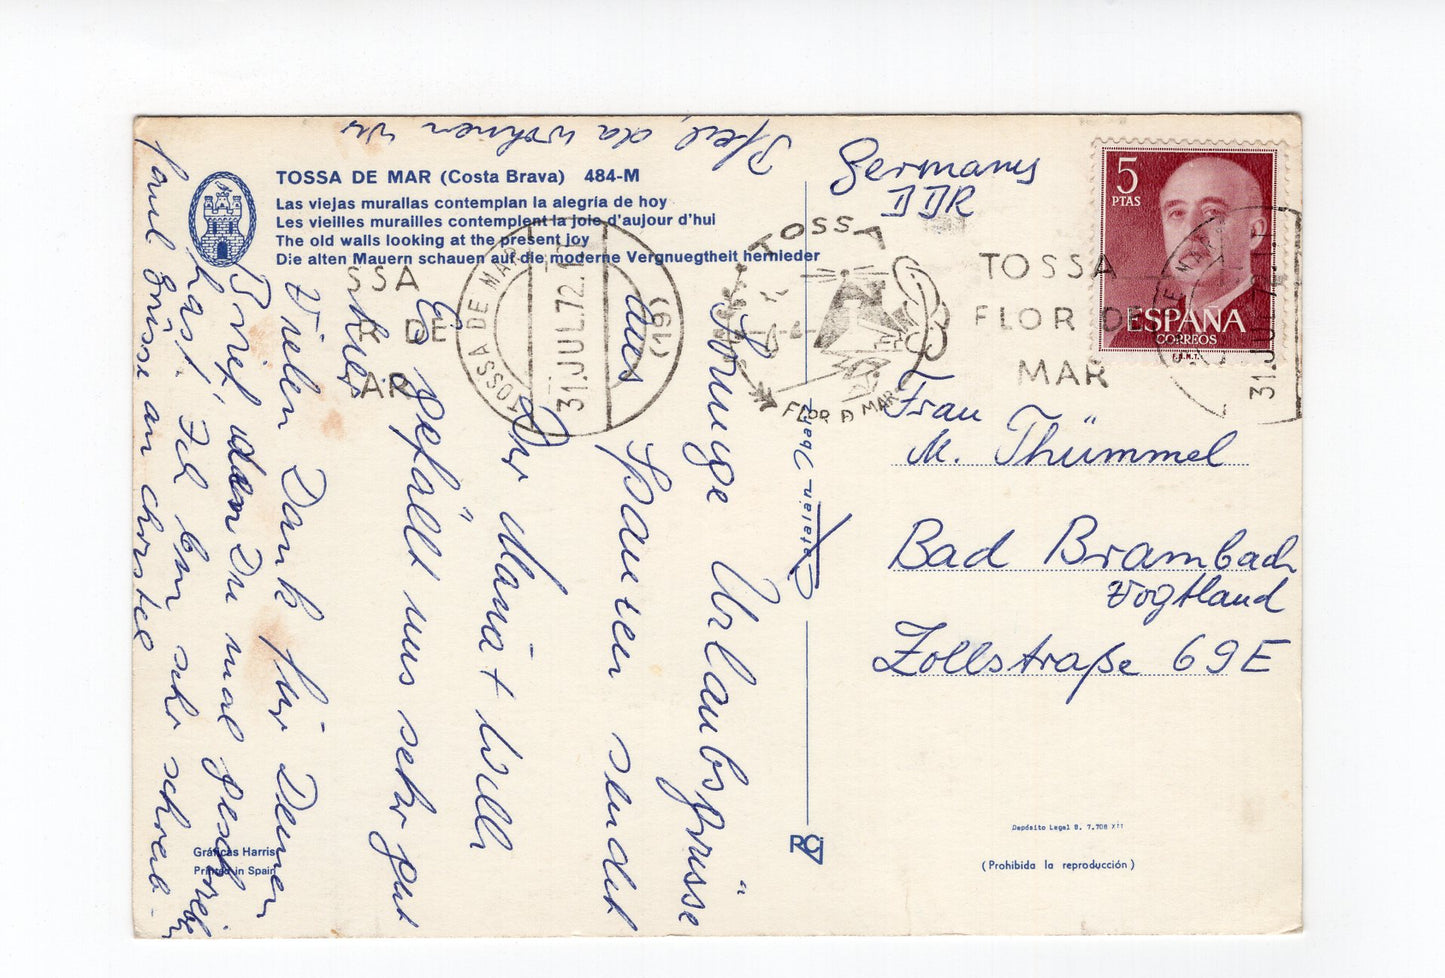 Pfeil, da wohnen wir
TOSSA DE MAR (Costa Brava) 484-M
Las viejas murallas contemplan la alegría de hoy
Les vieilles murailles contemplent la joie d'aujour d'hui
The old walls looking at the present joy
Die alten Mauern schauen auf die moderne Vergnuegtheit hernieder
Sonnige Urlaubsgrüsse
aus Spanien sendet
Dir Mama + Willi
Es gefällt uns sehr gut
hier
Vielen Dank für Deinen
Brief, den Du mal geschrieb.
hast. Ich bin sehr schreib-
faul Grüsse an Christel
Germany
DDR
5
PTAS
ESPAÑA
CORREOS
F.N.M.T.
TOSSA
FLOR DE
MAR
TOSSA
FLOR D MAR
TOSSA DE MAR
31.JUL.72
(19)
SSA
R DE
AR
31.JUL
Frau
M. Thümmel
Bad Brambach
Vogtland
Zollstraße 69E
Gráficas Harris
Printed in Spain
RCJ
Depósito Legal B. 7.708 XII
(Prohibida la reproducción)